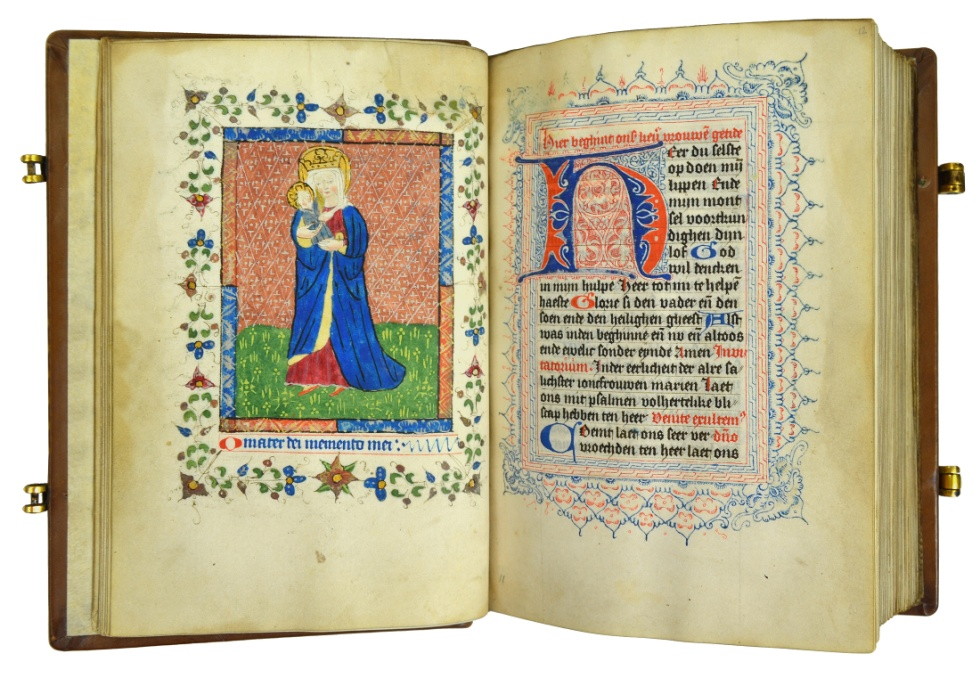 O mater dei memento mei
12
Hier beghint ons lieu vrouwē getide
HEer du selste
op doen mijn
lippen Ende
mijn mont
sel voortkun
dighen dijn
lof God
wil dencken
in mijn hulpe Heer tot mi te helpē
haeste Glorie si den vader eñ den
soen ende den heilighen gheest Alst
was inden beghinne eñ nv eñ altoos
ende ewelic sonder eynde Amen Inui
tatorium. Inder eerlicheit der alre sa
lichster ioncfrouwen marien Laet
ons mit psalmen volhertelike bli
scap hebben ten heer Venite exultem
Comt laet ons seer ver dño
vroechden ten heer laet ons